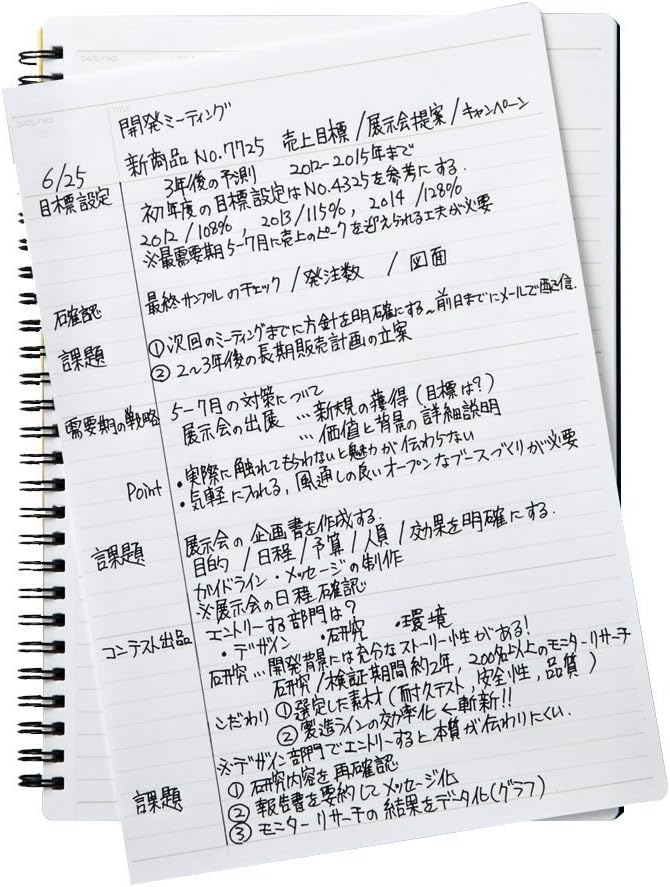 DATE/NO.
TITLE
開発ミーティング
6/25 新商品 No.7725 売上目標/展示会提案/キャンペーン
目標設定 3年後の予測 2012-2015年まで
初年度の目標設定はNo.4325を参考にする.
2012/108%, 2013/115%, 2014/128%
※最需要期5-7月に売上のピークを迎えられる工夫が必要
確認 最終サンプルのチェック/発注数 /図面
課題 ①次回のミーティングまでに方針を明確にする~前日までにメールで配信.
②2~3年後の長期販売計画の立案
需要期の戦略 5-7月の対策について
展示会の出展 …新規の獲得(目標は?)
…価値と背景の詳細説明
Point ・実際に触れてもらわないと魅力が伝わらない
・気軽に入れる, 風通しの良いオープンなブースづくりが必要
課題 展示会の企画書を作成する.
目的/日程/予算/人員/効果を明確にする.
ガイドライン・メッセージの制作
※展示会の日程確認
コンテスト出品 エントリーする部門は?
・デザイン ・研究 ・環境
研究…開発背景には充分なストーリー性がある!
研究/検証期間約2年, 200名以上のモニターリサーチ
こだわり ①選定した素材(耐久テスト, 安全性, 品質)
②製造ラインの効率化←斬新!!
※デザイン部門でエントリーすると本質が伝わりにくい.
課題 ①研究内容を再確認
②報告書を要約してメッセージ化
③モニターリサーチの結果をデータ化(グラフ)